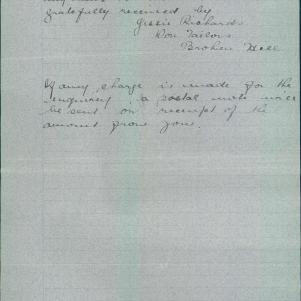 gratefully received by
Green Richards
Ron Tailors
Broken Hill
If any charge is made for the
enquiry, a postal note will
be sent on receipt of the
amount from you.